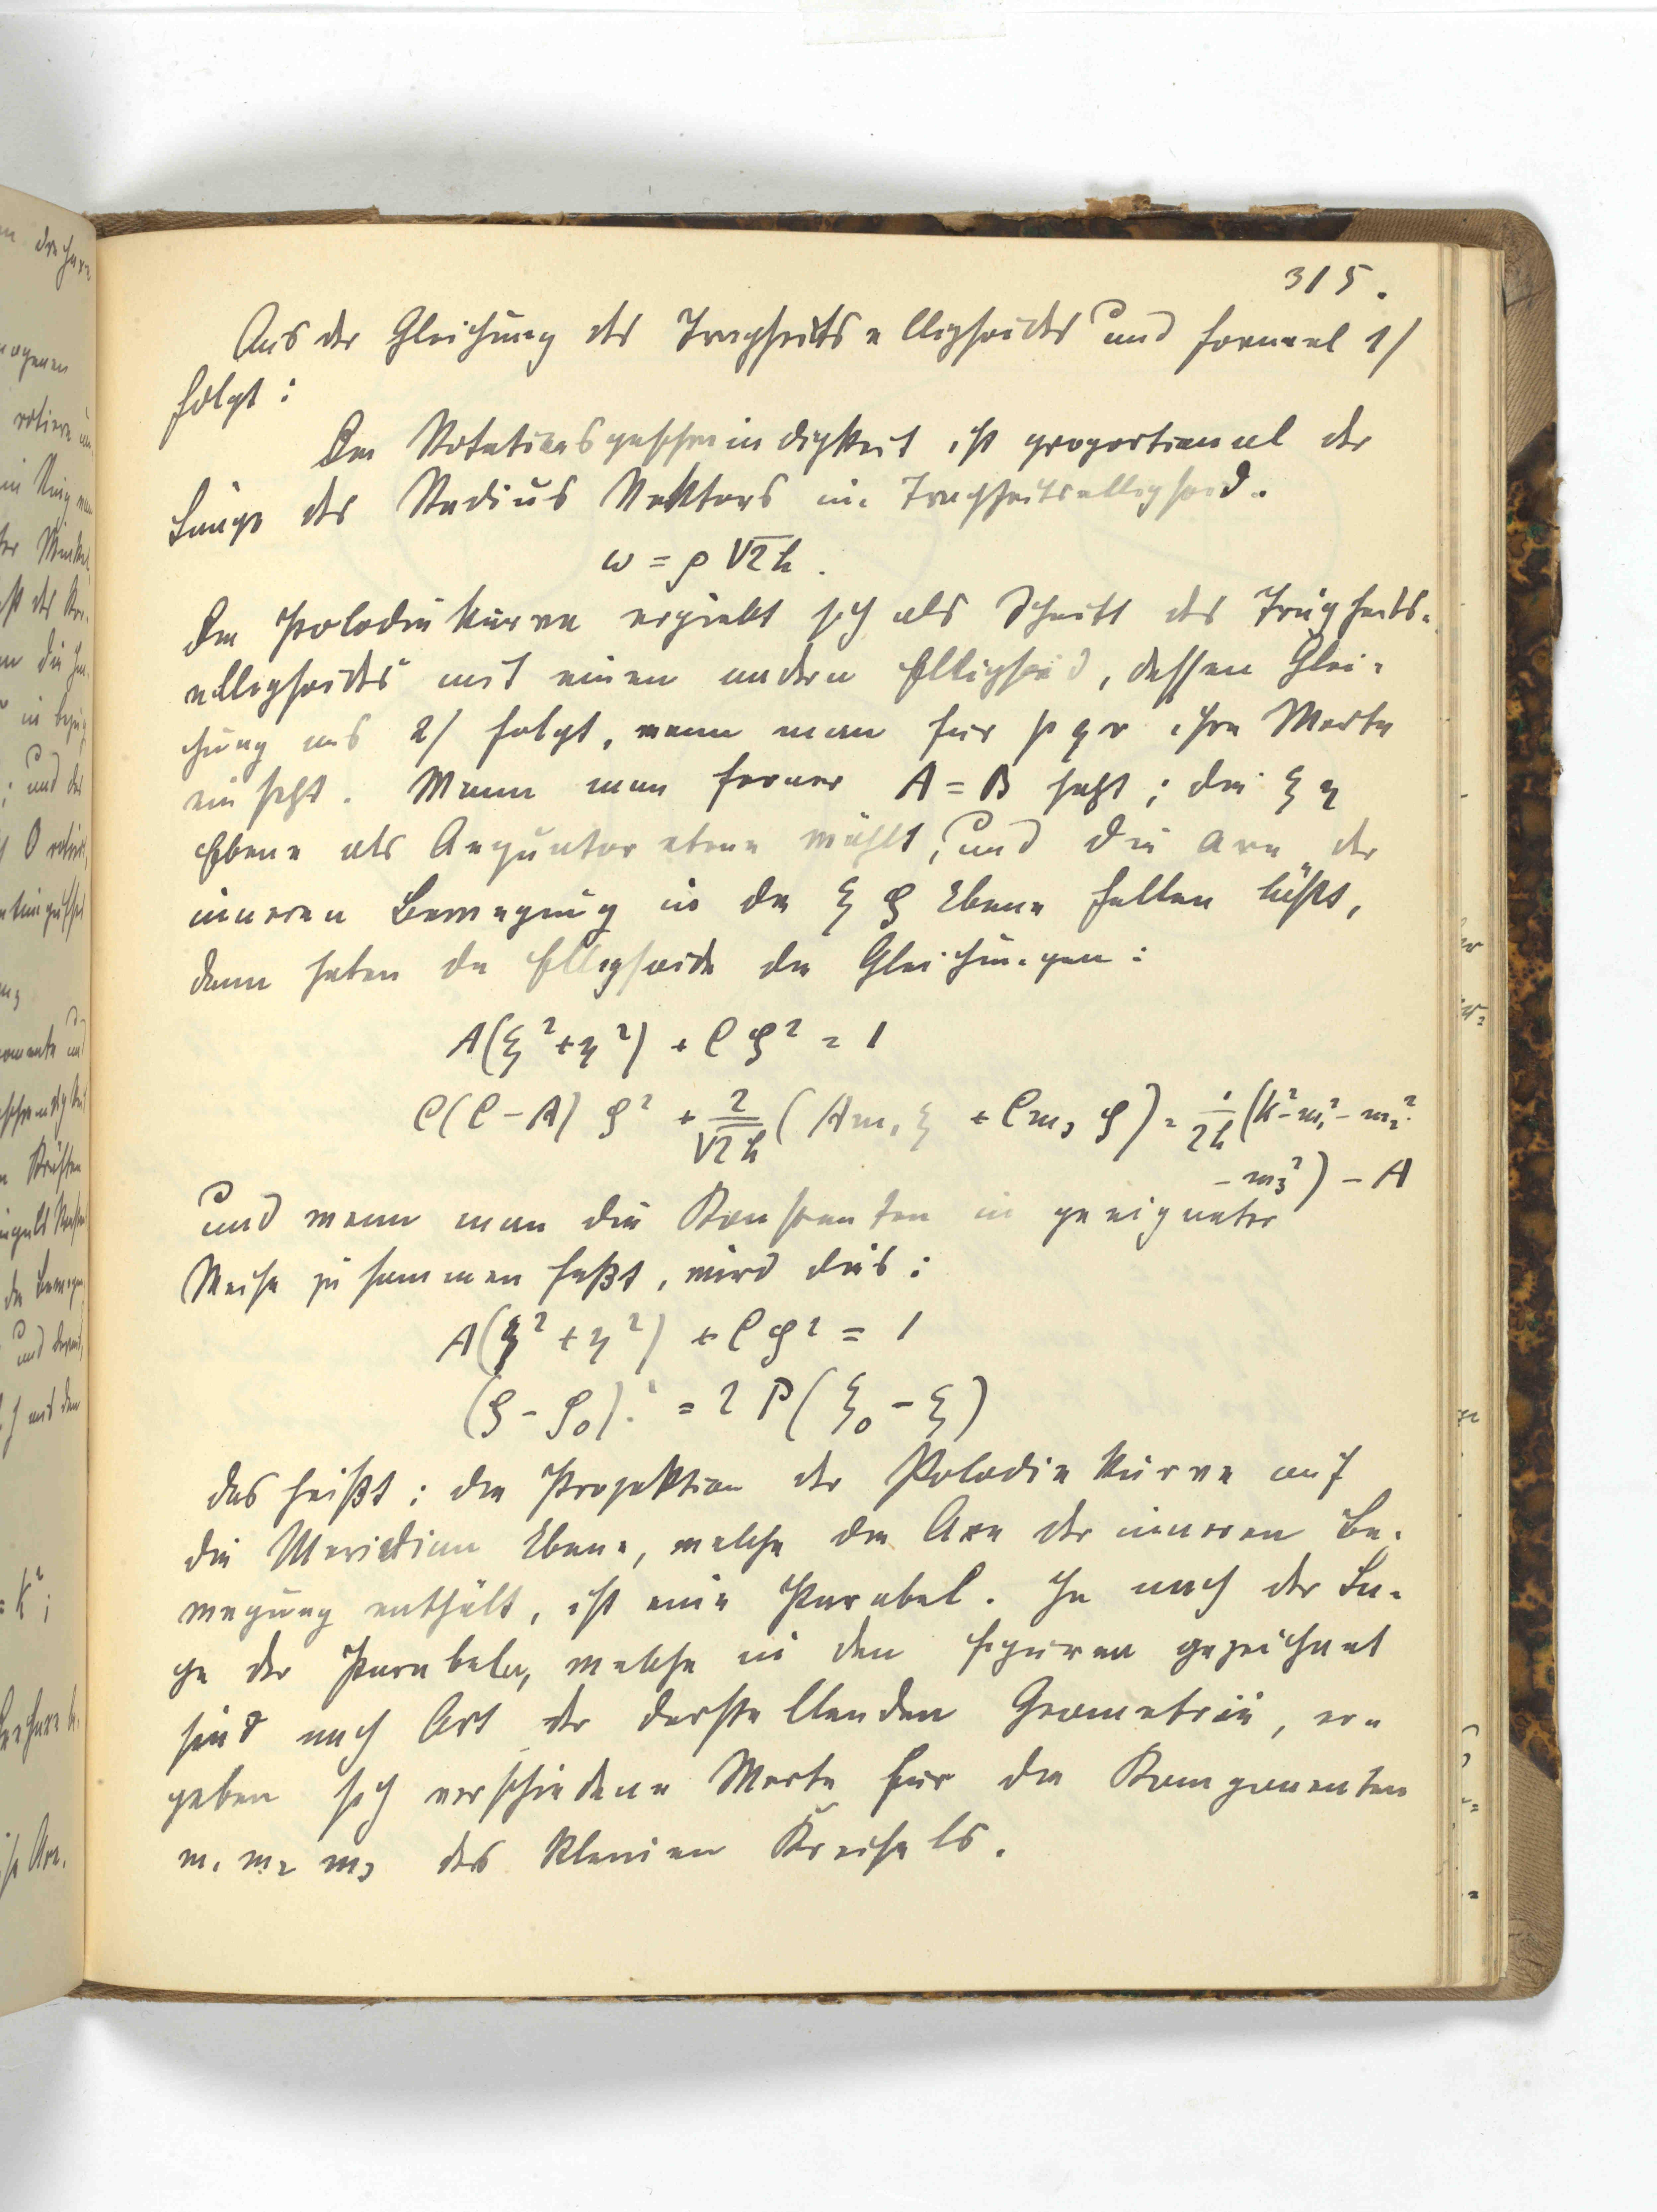 315.
Aus der Gleichung des Trägheitsellipsoides und Formel 1)
folgt:
Die Rotationsgeschwindigkeit ist proportional der
Länge des Radius Vektors im Trägheitsellipsoid.
ω = ρ √2h.
Die Polodiekurve ergiebt sich als Schnitt des Trägheits-
ellipsoides mit einem andern Ellipsoid, dessen Glei-
chung aus 2) folgt, wenn man für p q r ihre Werte
einsetzt. Wenn man ferner A = B setzt; die ξ η
Ebene als Aequatorebene wählt, und die Axe der
inneren Bewegung in die ξ ζ Ebene fallen läßt,
dann haben die Ellipsoide die Gleichungen:
A(ξ² + η²) + C ζ² = 1
C(C − A) ζ² + 2/√2h (A m₁ ξ + C m₃ ζ) = 1/2h (k² − m₁² − m₂²
− m₃²) − A
und wenn man die Konstanten in geeigneter
Weise zusammen faßt, wird dies:
A(ξ² + η²) + C ζ² = 1
(ζ − ζ₀)² = 2 P(ξ₀ − ξ)
das heißt: die Projektion der Polodiekurve auf
die Meridian Ebene, welche die Axe der inneren Be-
wegung enthält, ist eine Parabel. Je nach der La-
ge der Parabeln, welche in den Figuren gezeichnet
sind nach Art der darstellenden Geometrie, er-
geben sich verschiedene Werte für die Komponenten
m₁ m₂ m₃ des kleinen Kreisels.